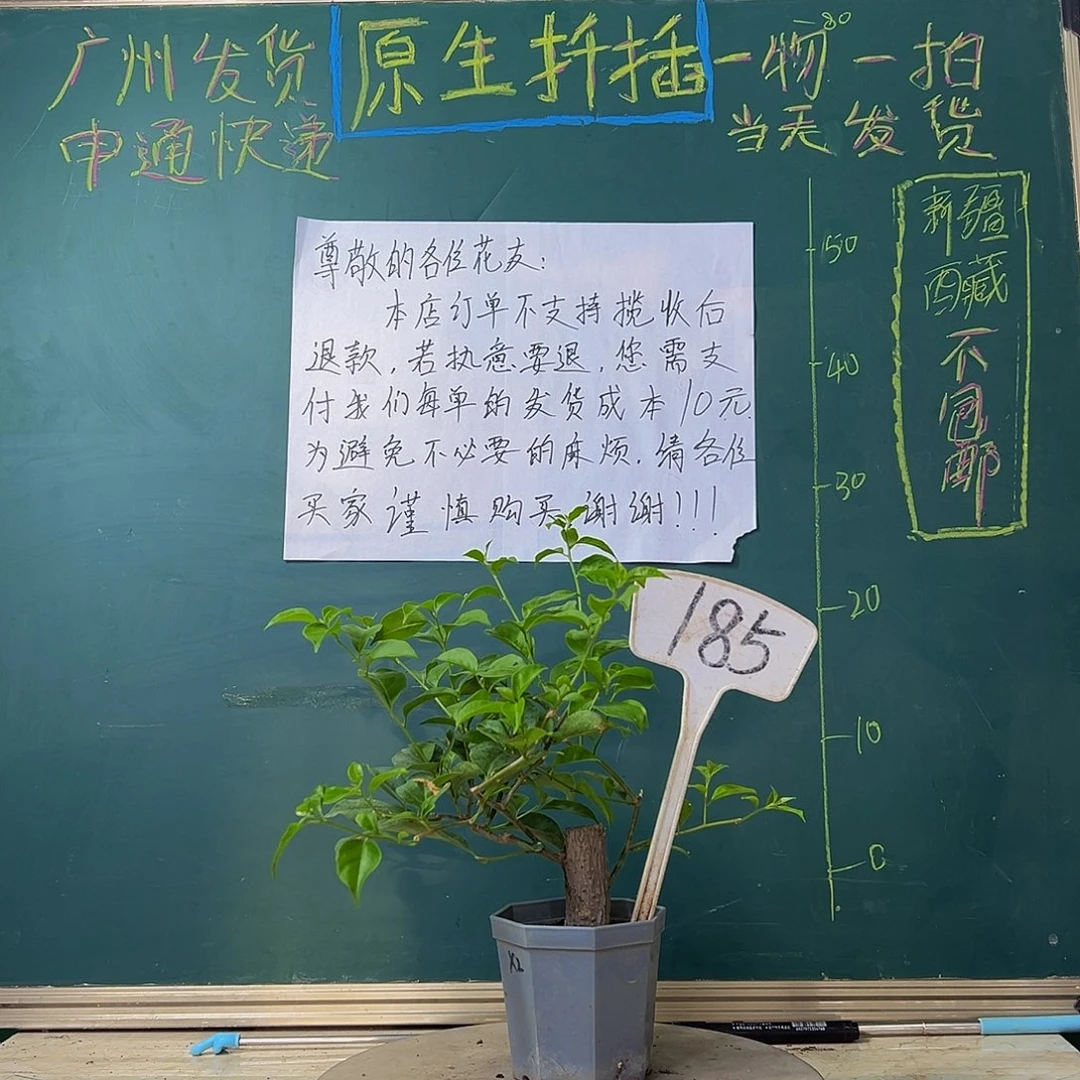 广州发货
申通快递
原生扦插
一物一拍
当天发货
新疆
西藏
不
包
邮
尊敬的各位花友:
本店订单不支持揽收后
退款,若执意要退,您需支
付我们每单的发货成本10元.
为避免不必要的麻烦.请各位
买家谨慎购买谢谢!!!
50
40
30
20
10
0
185